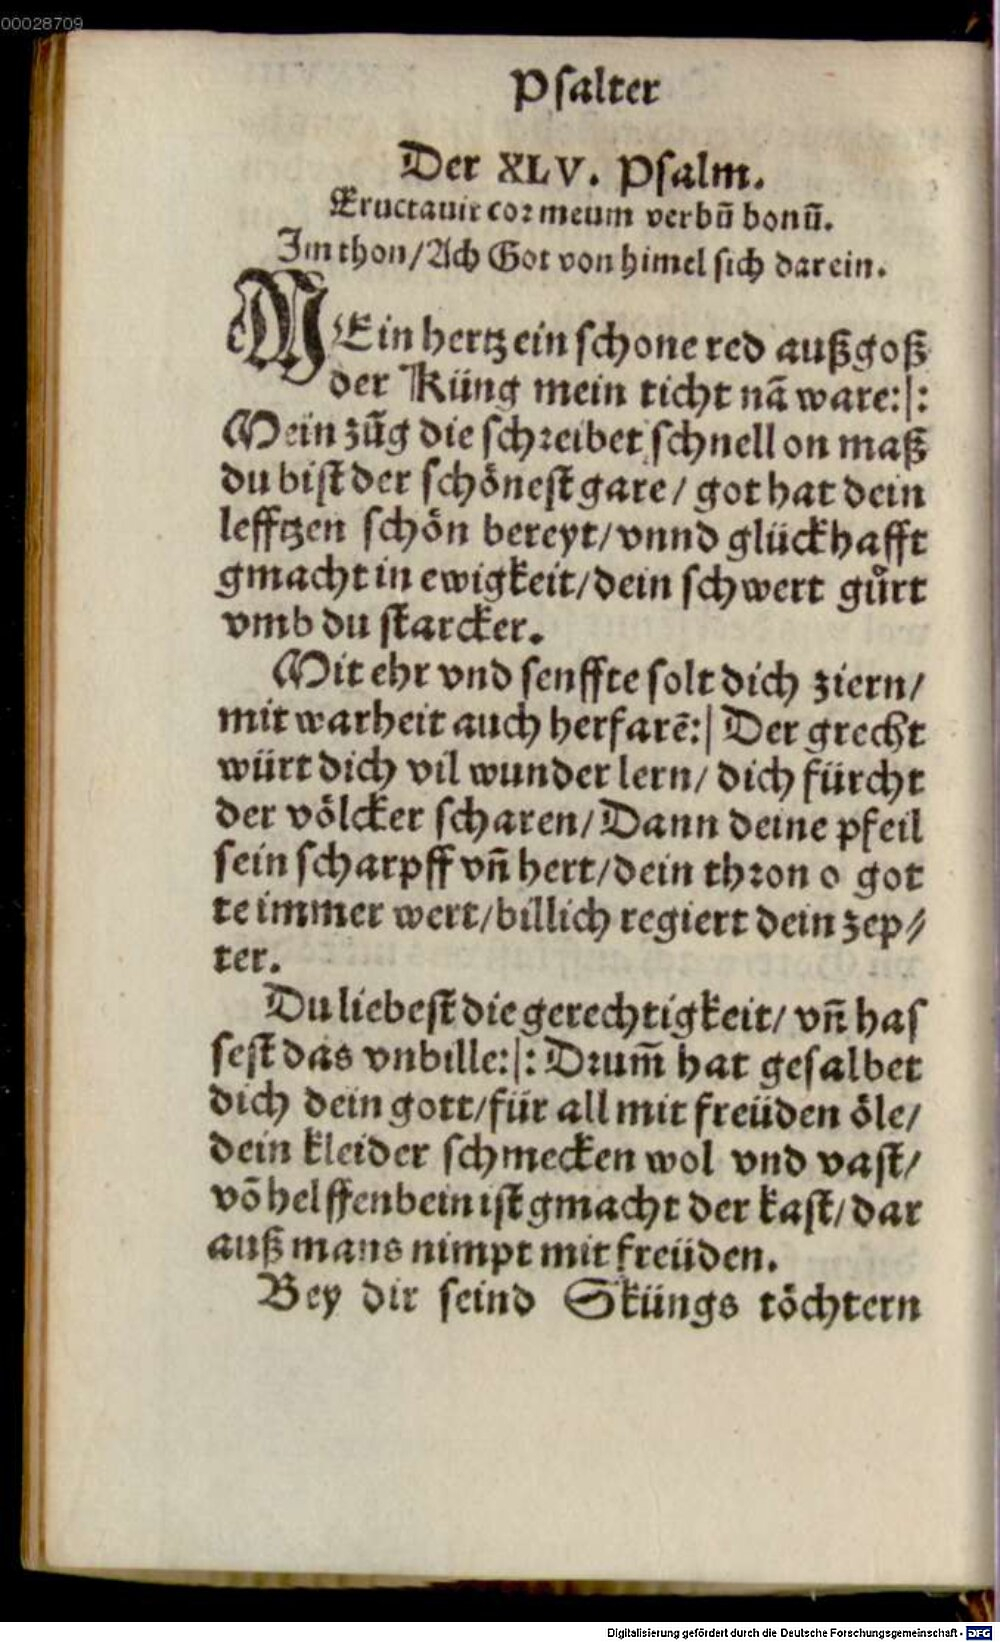 00028709
Psalter
Der XLV. Psalm.
Eructauit cor meum verbū bonū.
Im thon/Ach Got von himel sich darein.
MEin hertz ein schone red außgoß
der Küng mein ticht nā ware:|:
Mein zūg die schreibet schnell on maß
du bist der schönest gare/ got hat dein
lefftzen schön bereyt/vnnd glückhafft
gmacht in ewigkeit/dein schwert gůrt
vmb du starcker.
Mit ehr vnd senffte solt dich ziern/
mit warheit auch herfarē:| Der grecht
würt dich vil wunder lern/ dich fürcht
der völcker scharen/Dann deine pfeil
sein scharpff vn̄ hert/dein thron o got
te immer wert/billich regiert dein zep⸗
ter.
Du liebest die gerechtigkeit/ vn̄ has
sest das vnbille:|: Drum̄ hat gesalbet
dich dein gott/für all mit freüden öle/
dein kleider schmecken wol vnd vast/
vō helffenbein ist gmacht der kast/dar
auß mans nimpt mit freüden.
Bey dir seind Sküngs töchtern
Digitalisierung gefördert durch die Deutsche Forschungsgemeinschaft - DFG